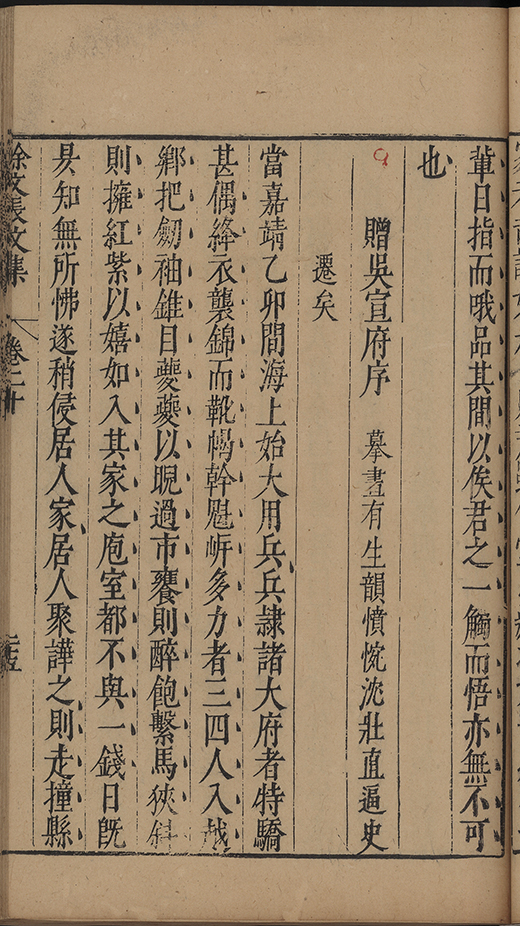 軰日指而哦品其間以俟君之一觸而悟亦無不可
也
贈吳宣府序 摹畫有生韻憤惋沈壯直逼史
遷矣
當嘉靖乙卯間海上始大用兵兵隷諸大府者特驕
甚偶絳衣襲錦而靴幍幹魁岍多力者三四人入越
鄉把劒袖錐目夔夔以睨過市饔則醉飽繫馬狹斜
則擁紅紫以嬉如入其家之庖室都不與一錢日旣
乆知無所怫遂稍侵居人家居人聚譁之則走撞縣
徐文長文集 卷二十 二五